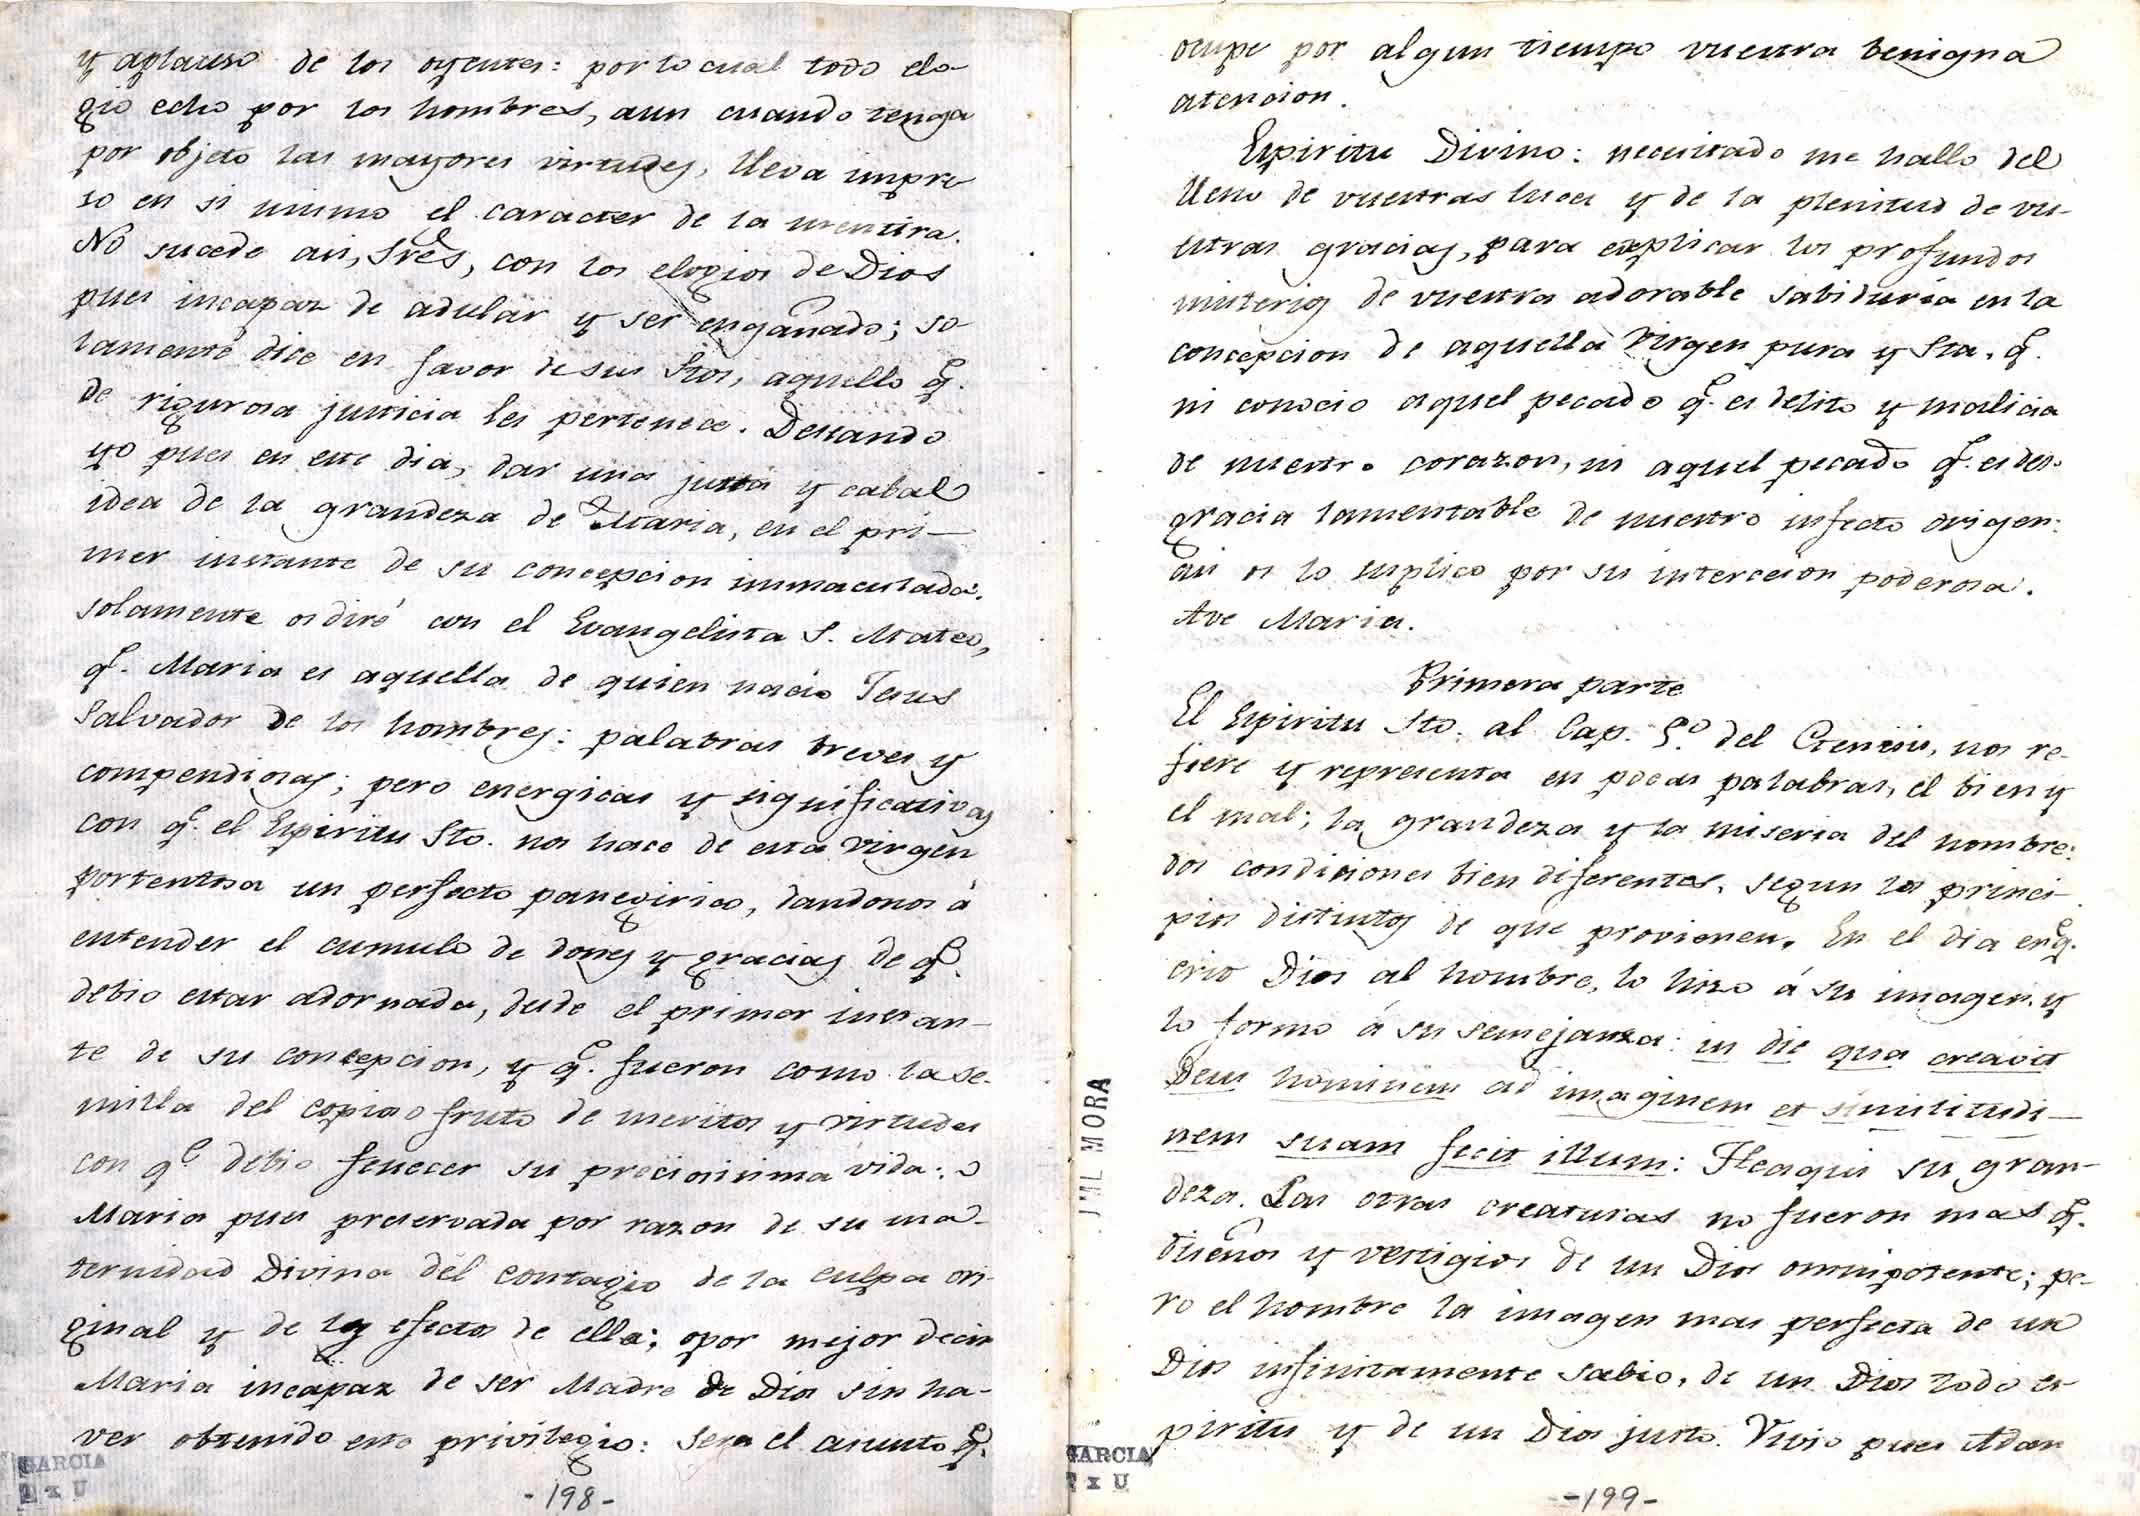 y aplauso de los oyentes: por lo cual todo elo-
gio echo por los hombres, aun cuando tenga
por objeto las mayores virtudes, lleva impre
so en si mismo el caracter de la mentira.
No sucede asi, Sres, con los elogios de Dios
pues incapaz de adular y ser engañado; so-
lamente dice en favor de sus Stos, aquello q.e
de rigurosa justicia les pertenece. Deseando
yo pues en este dia, dar una justa y cabal
idea de la grandeza de Maria, en el pri-
mer instante de su concepcion immaculada.
solamente os diré con el Evangelista S. Mateo,
q.e Maria es aquella de quien nacio Jesus
Salvador de los hombres: palabras breves y
compendiosas; pero energicas y significativas
con q.e el Espiritu Sto. nos hace de esta Virgen
portentosa un perfecto panegirico, dandonos á
entender el cumulo de dones y gracias de q.e
debio estar adornada, desde el primer instan-
te de su concepcion, y q.e fueron como la se-
milla del copioso fruto de meritos y virtudes
con q.e debio fenecer su preciosisima vida: o
Maria pues preservada por razon de su ma-
ternidad Divina del contagio de la culpa ori-
ginal y de los efectos de ella; o por mejor decir
Maria incapaz de ser Madre de Dios sin ha-
ver obtenido este privilegio: sera el asunto q.e
GARCIA
T x U
-198-
ocupe por algun tiempo vuestra benigna
atencion.
Espiritu Divino: necesitado me hallo del
lleno de vuestras luces y de la plenitud de vu-
estras gracias, para explicar los profundos
misterios de vuestra adorable sabiduria en la
concepcion de aquella Virgen pura y Sta. q.e
ni conocio aquel pecado q.e es delito y malicia
de nuestro corazon, ni aquel pecado q.e es des-
gracia lamentable de nuestro infecto origen:
asi os lo suplico por su intercecion poderosa.
Ave Maria.
Primera parte
El Espiritu Sto. al Cap. 5.o del Genisis, nos re-
fiere y representa en pocas palabras, el bien y
el mal; la grandeza y la miseria del hombre:
dos condiciones bien diferentes, segun los princi-
pios distintos de que provienen. En el dia en q.e
crio Dios al hombre, lo hizo á su imagen y
lo formo á su semejanza: in die qua creavit
Deus hominem ad imaginem et similitudi-
nem suam fecit illum: He aqui su gran-
deza. Las otras creaturas no fueron mas q.e
diseños y vestigios de un Dios omnipotente; pe-
ro el hombre la imagen mas perfecta de un
Dios infinitamente sabio, de un Dios todo es-
piritu y de un Dios justo. Vivio pues Adan
JML MORA
GARCIA
T x U
-199-